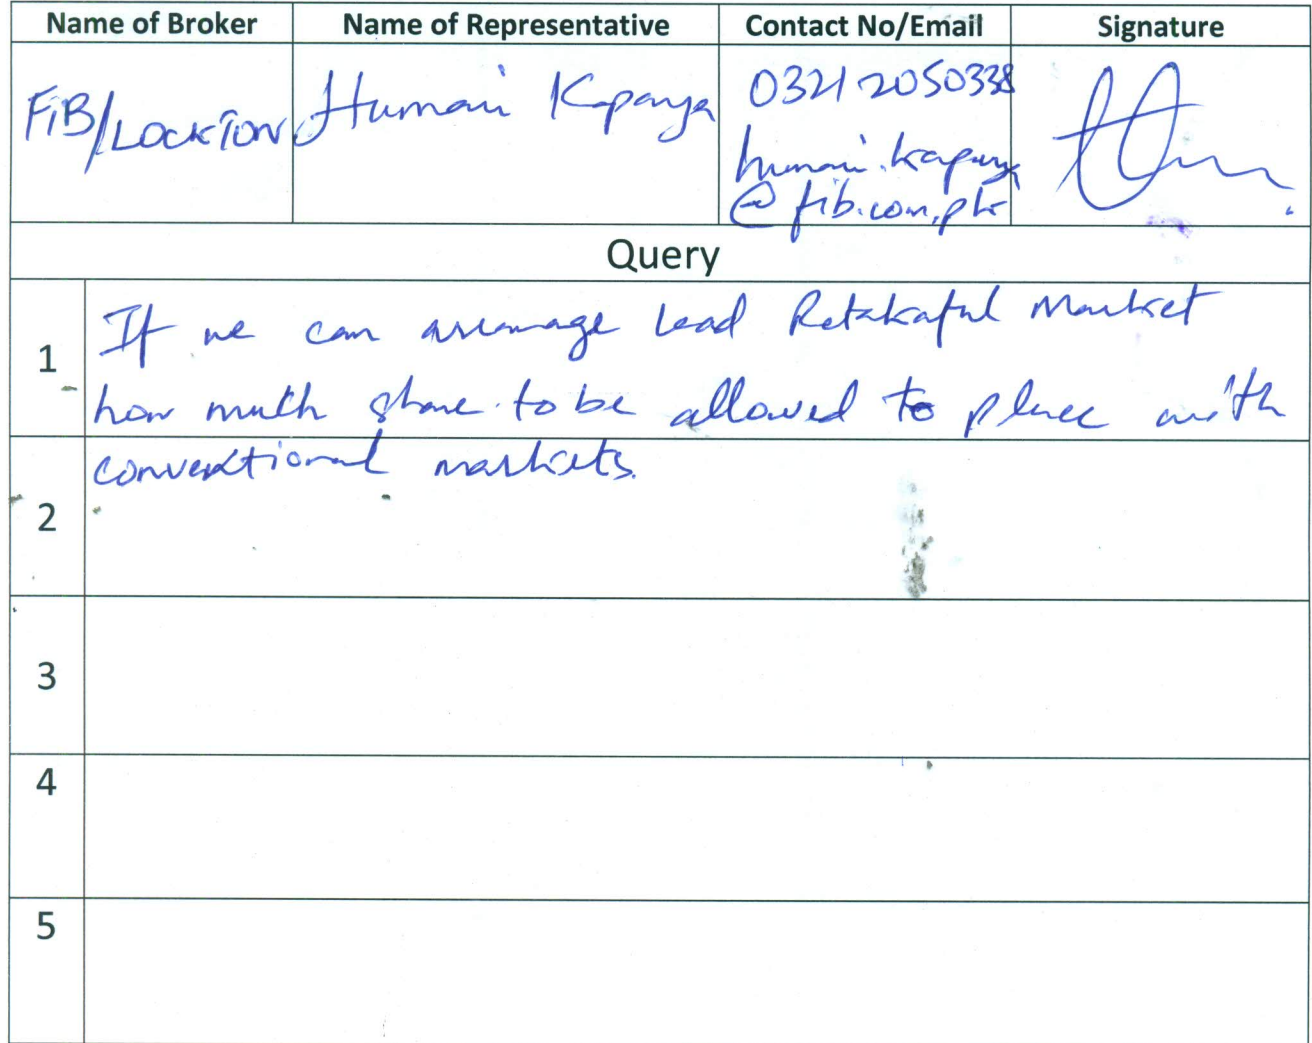 Name of Broker Name of Representative Contact No/Email Signature
FiB/LOCKTON Humair Kapaya 0321 2050338
humair.kapaya
@fib.com.pk
Query
1 If we can arranage lead Retakaful Market
how much share to be allowed to place with
2 conventional markets.
3
4
5